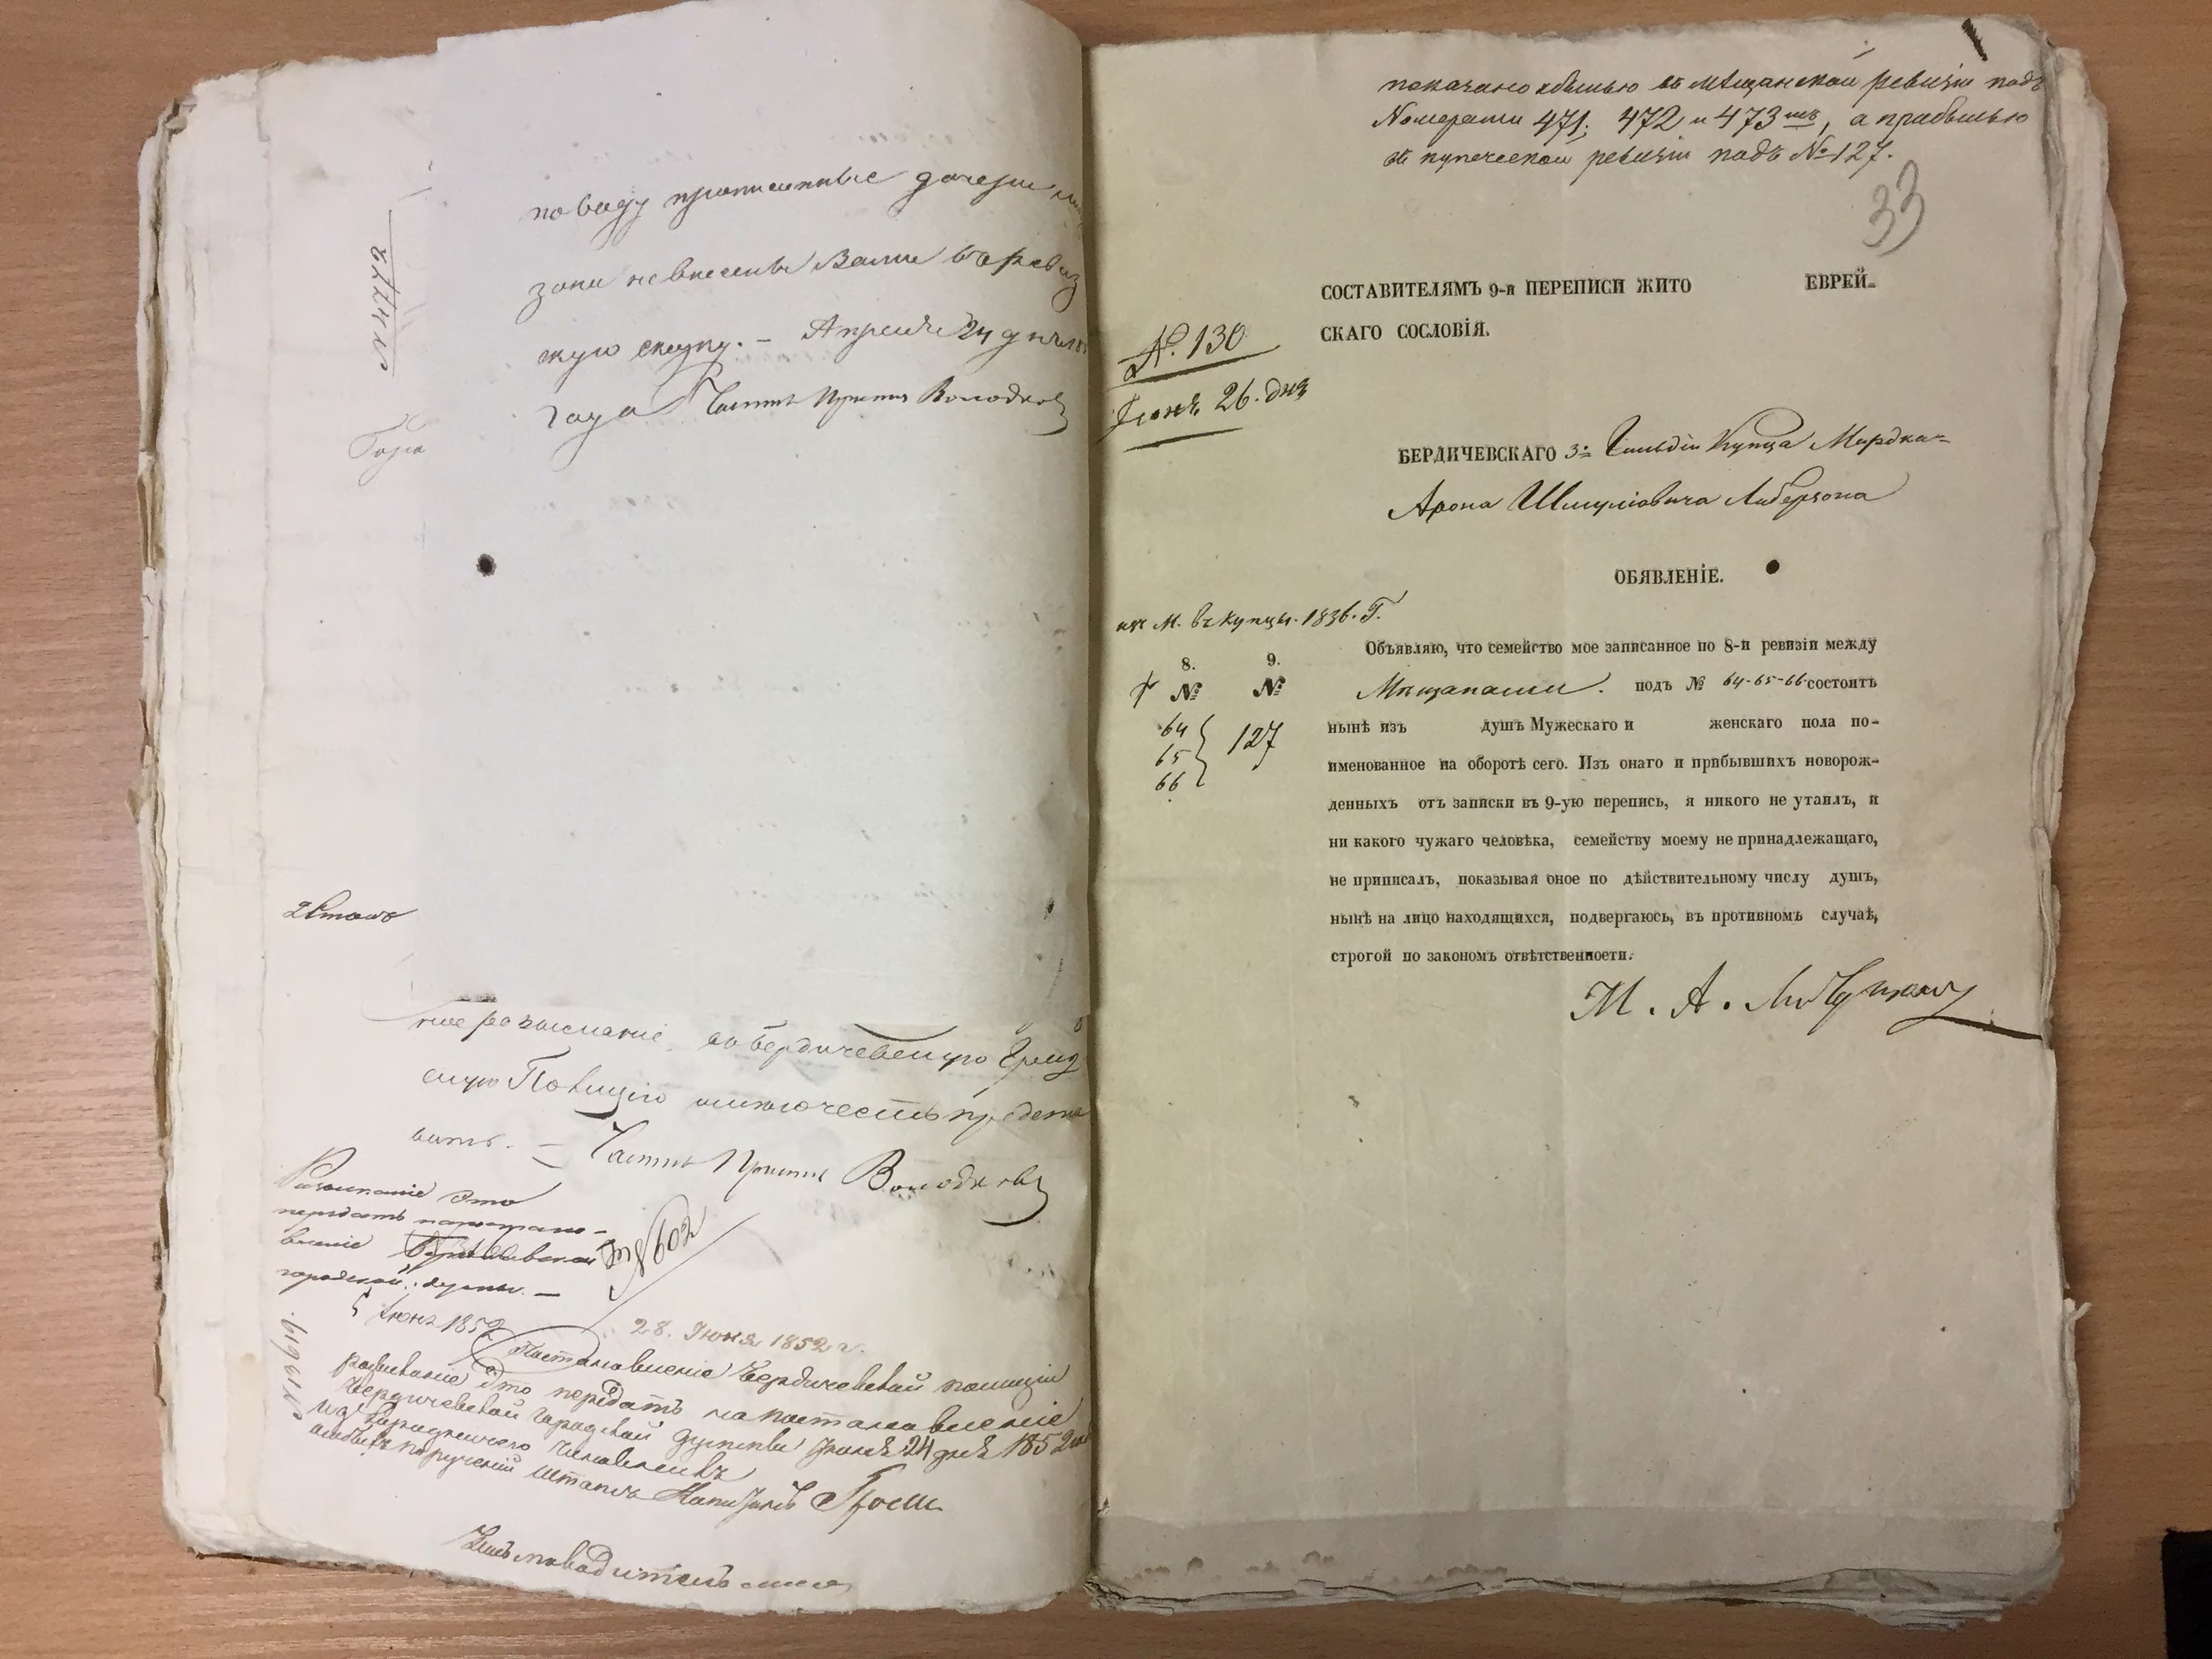 № 4772
поводу прописанные дочери
зони невнесены Вами въ ревиз
скую скаску. – Апреля 24 дня
года Частный Приставъ
2 Стано
розысканіе въ Бердичевскую Град
скую Полицію имею честь предста
вить. – Частный Приставъ
Розысканіе это
передать на постано-
вленіе Бердичевской
городской думы. –
5 Іюня 1852
№ 602
28. Іюня 1852 г.
Постановленіе Бердичевской полиціи
розысканіе это передать на постановленіе
Бердичевской городской думы Іюня 24 дня 1852
Городничего Чиновникъ
особыхъ порученій Штабсъ Капитанъ
№ 19619
показано убылью въ мѣщанской ревизіи подъ
Номерами 471, 472 и 473мъ, а прибылью
въ купеческой ревизіи подъ № 127.
33
СОСТАВИТЕЛЯМЪ 9-й ПЕРЕПИСИ ЖИТО ЕВРЕЙ-
СКАГО СОСЛОВІЯ.
№. 130
Іюня 26. дня
БЕРДИЧЕВСКАГО 3й Гильдіи Купца Мордка-
Арона Шмуліовича Либерзона
ОБЯВЛЕНІЕ.
изъ М. въ купцы. 1836. Г.
8. 9.
№ №
64
65 127
66
Объявляю, что семейство мое записанное по 8-й ревизіи между
Мѣщанами. подъ № 64-65-66 состоитъ
нынѣ изъ душъ Мужескаго и женскаго пола по-
именованное на оборотѣ сего. Изъ онаго и прибывшихъ новорож-
денныхъ отъ записки въ 9-ую перепись, я никого не утаилъ, и
ни какого чужаго человѣка, семейству моему не принадлежащаго,
не приписалъ, показывая оное по дѣйствительному числу душъ,
нынѣ на лицо находящихся, подвергаюсь, въ противномъ случаѣ,
строгой по закономъ отвѣтственности.
М. А.